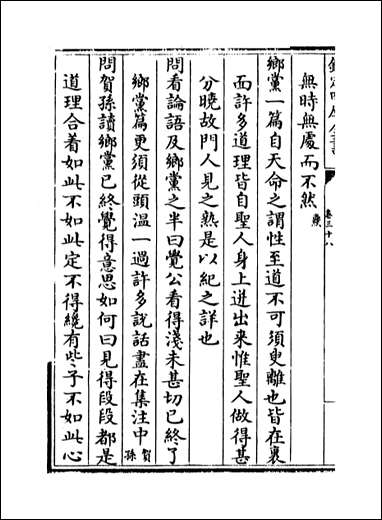 卷三十八
無時無處而不然
鄉黨一篇自天命之謂性至道不可須臾離也皆在裏
面許多道理皆自聖人身上迸出來惟聖人做得甚
分曉故門人見之熟是以紀之詳也
問看論語及鄉黨之半曰覺公看得淺未甚切已終了
鄉黨篇更須從頭溫一過許多說話盡在集注中賀孫
問賀孫讀鄉黨已終覺得意思如何曰見得段段都是
道理合着如此不如此定不得纔有些子不如此心